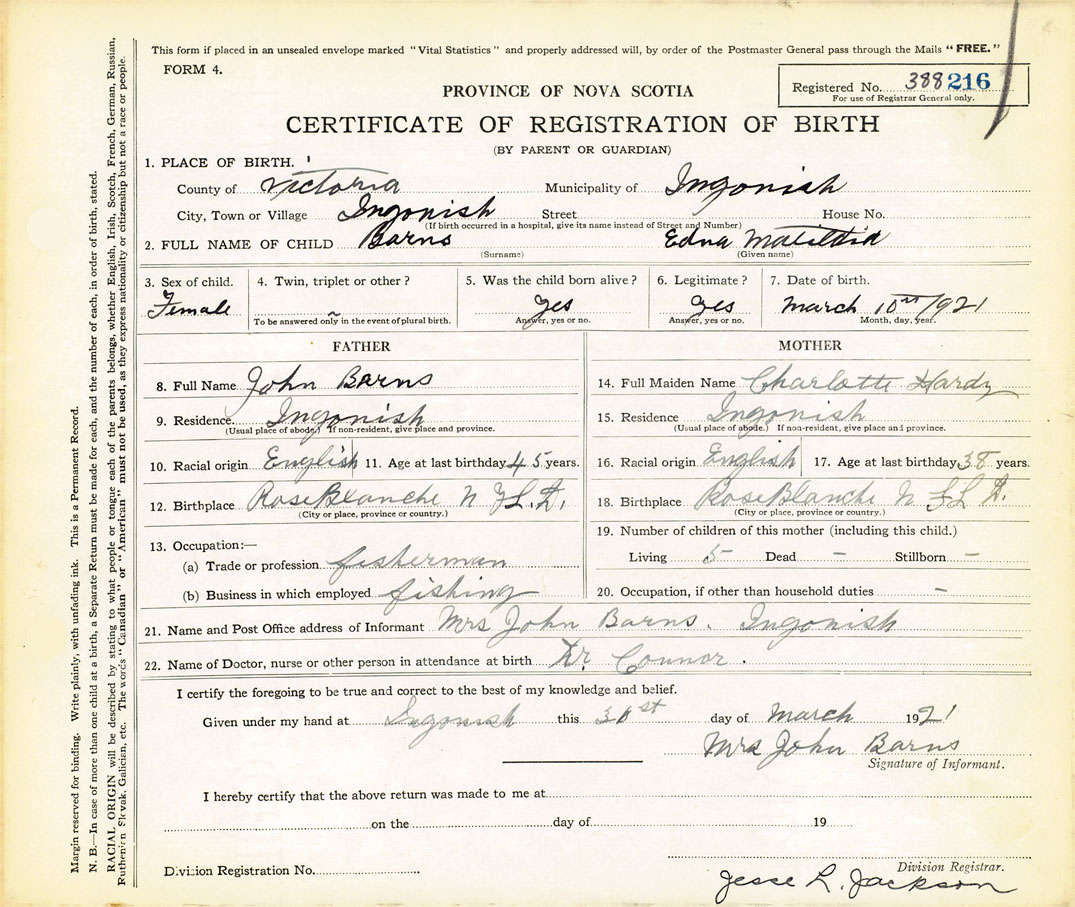 This form if placed in an unsealed envelope marked "Vital Statistics" and properly addressed will, by order of the Postmaster General pass through the Mails "FREE."
FORM 4.
Registered No. 388216
For use of Registrar General only.
PROVINCE OF NOVA SCOTIA
CERTIFICATE OF REGISTRATION OF BIRTH
(BY PARENT OR GUARDIAN)
1. PLACE OF BIRTH.
County of Victoria Municipality of Ingonish
City, Town or Village Ingonish Street House No.
(If birth occurred in a hospital, give its name instead of Street and Number)
2. FULL NAME OF CHILD Barns Edna
(Surname) (Given name)
3. Sex of child. 4. Twin, triplet or other? 5. Was the child born alive? 6. Legitimate? 7. Date of birth.
Female ~ Yes Yes March 10 1921
To be answered only in the event of plural birth. Answer, yes or no. Answer, yes or no. Month, day, year.
FATHER
8. Full Name John Barns
9. Residence. Ingonish
(Usual place of abode.) If non-resident, give place and province.
10. Racial origin English 11. Age at last birthday 45 years.
12. Birthplace Rose Blanche N F L D.
(City or place, province or country.)
13. Occupation:—
(a) Trade or profession fisherman
(b) Business in which employed fishing
MOTHER
14. Full Maiden Name Charlotte Hardy
15. Residence Ingonish
(Usual place of abode.) If non-resident, give place and province.
16. Racial origin English 17. Age at last birthday 38 years.
18. Birthplace Rose Blanche N F L D.
(City or place, province or country.)
19. Number of children of this mother (including this child.)
Living 5 Dead – Stillborn –
20. Occupation, if other than household duties –
21. Name and Post Office address of Informant Mrs John Barns. Ingonish
22. Name of Doctor, nurse or other person in attendance at birth Dr. Connor.
I certify the foregoing to be true and correct to the best of my knowledge and belief.
Given under my hand at Ingonish this day of March 1921
Mrs John Barns
Signature of Informant.
I hereby certify that the above return was made to me at
on the day of 19
Division Registration No.
Division Registrar.
Jesse L. Jackson
Margin reserved for binding. Write plainly, with unfading ink. This is a Permanent Record.
N. B.—In case of more than one child at a birth, a Separate Return must be made for each, and the number of each, in order of birth, stated.
RACIAL ORIGIN will be described by stating to what people or tongue each of the parents belongs, whether English, Irish, Scotch, French, German, Russian,
Ruthenian Slovak, Galician, etc. The words "Canadian" or "American" must not be used, as they express nationality or citizenship but not a race or people.